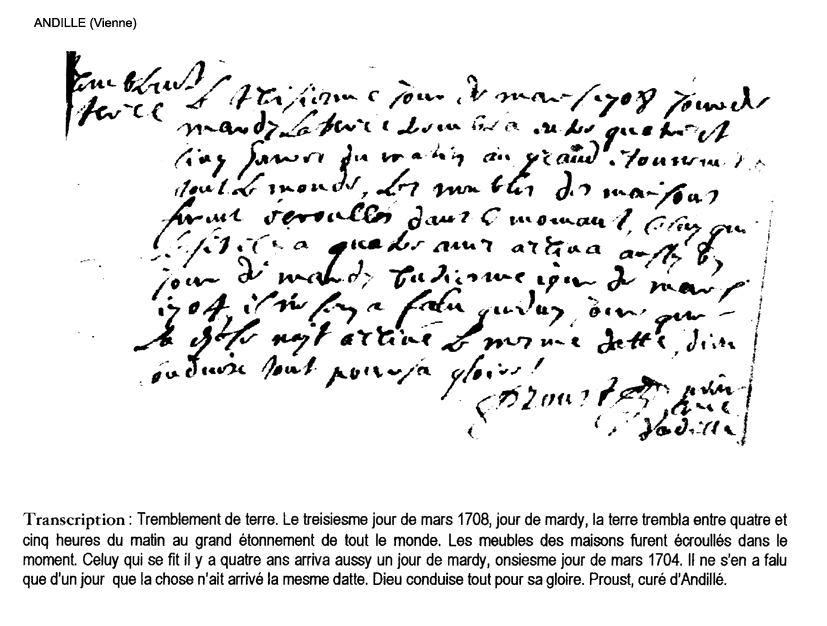 ANDILLE (Vienne)
terre
Le treisiesme jour de mars 1708 jour de
mardy la terre trembla entre quatre et
cinq heures du matin au grand étonnement
tout le monde, Les meubles des maisons
furent écroullés dans le momant, Celuy qui
se fit il y a quatre ans arriva aussy un
jour de mardy onsiesme jour de mars
1704, il ne s'en a falu que d'un jour que
la chose n'ait arrivé le mesme datte, dieu
conduise tout pour sa gloire!
Proust
curé
d'Andillé
Transcription : Tremblement de terre. Le treisiesme jour de mars 1708, jour de mardy, la terre trembla entre quatre et
cinq heures du matin au grand étonnement de tout le monde. Les meubles des maisons furent écroullés dans le
moment. Celuy qui se fit il y a quatre ans arriva aussy un jour de mardy, onsiesme jour de mars 1704. Il ne s'en a falu
que d'un jour que la chose n'ait arrivé la mesme datte. Dieu conduise tout pour sa gloire. Proust, curé d'Andillé.